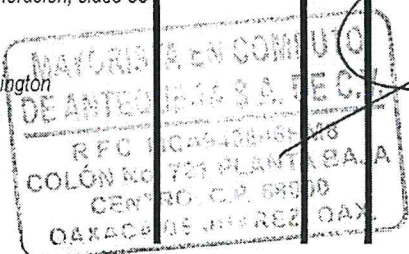 ington
MAYORISTA EN COMPUTO
DE ANTEQUERA S.A. DE C.V.
R F C
COLÓN No. 721 PLANTA BAJA
CENTRO. C.P. 68000
OAXACA DE JUAREZ OAX.